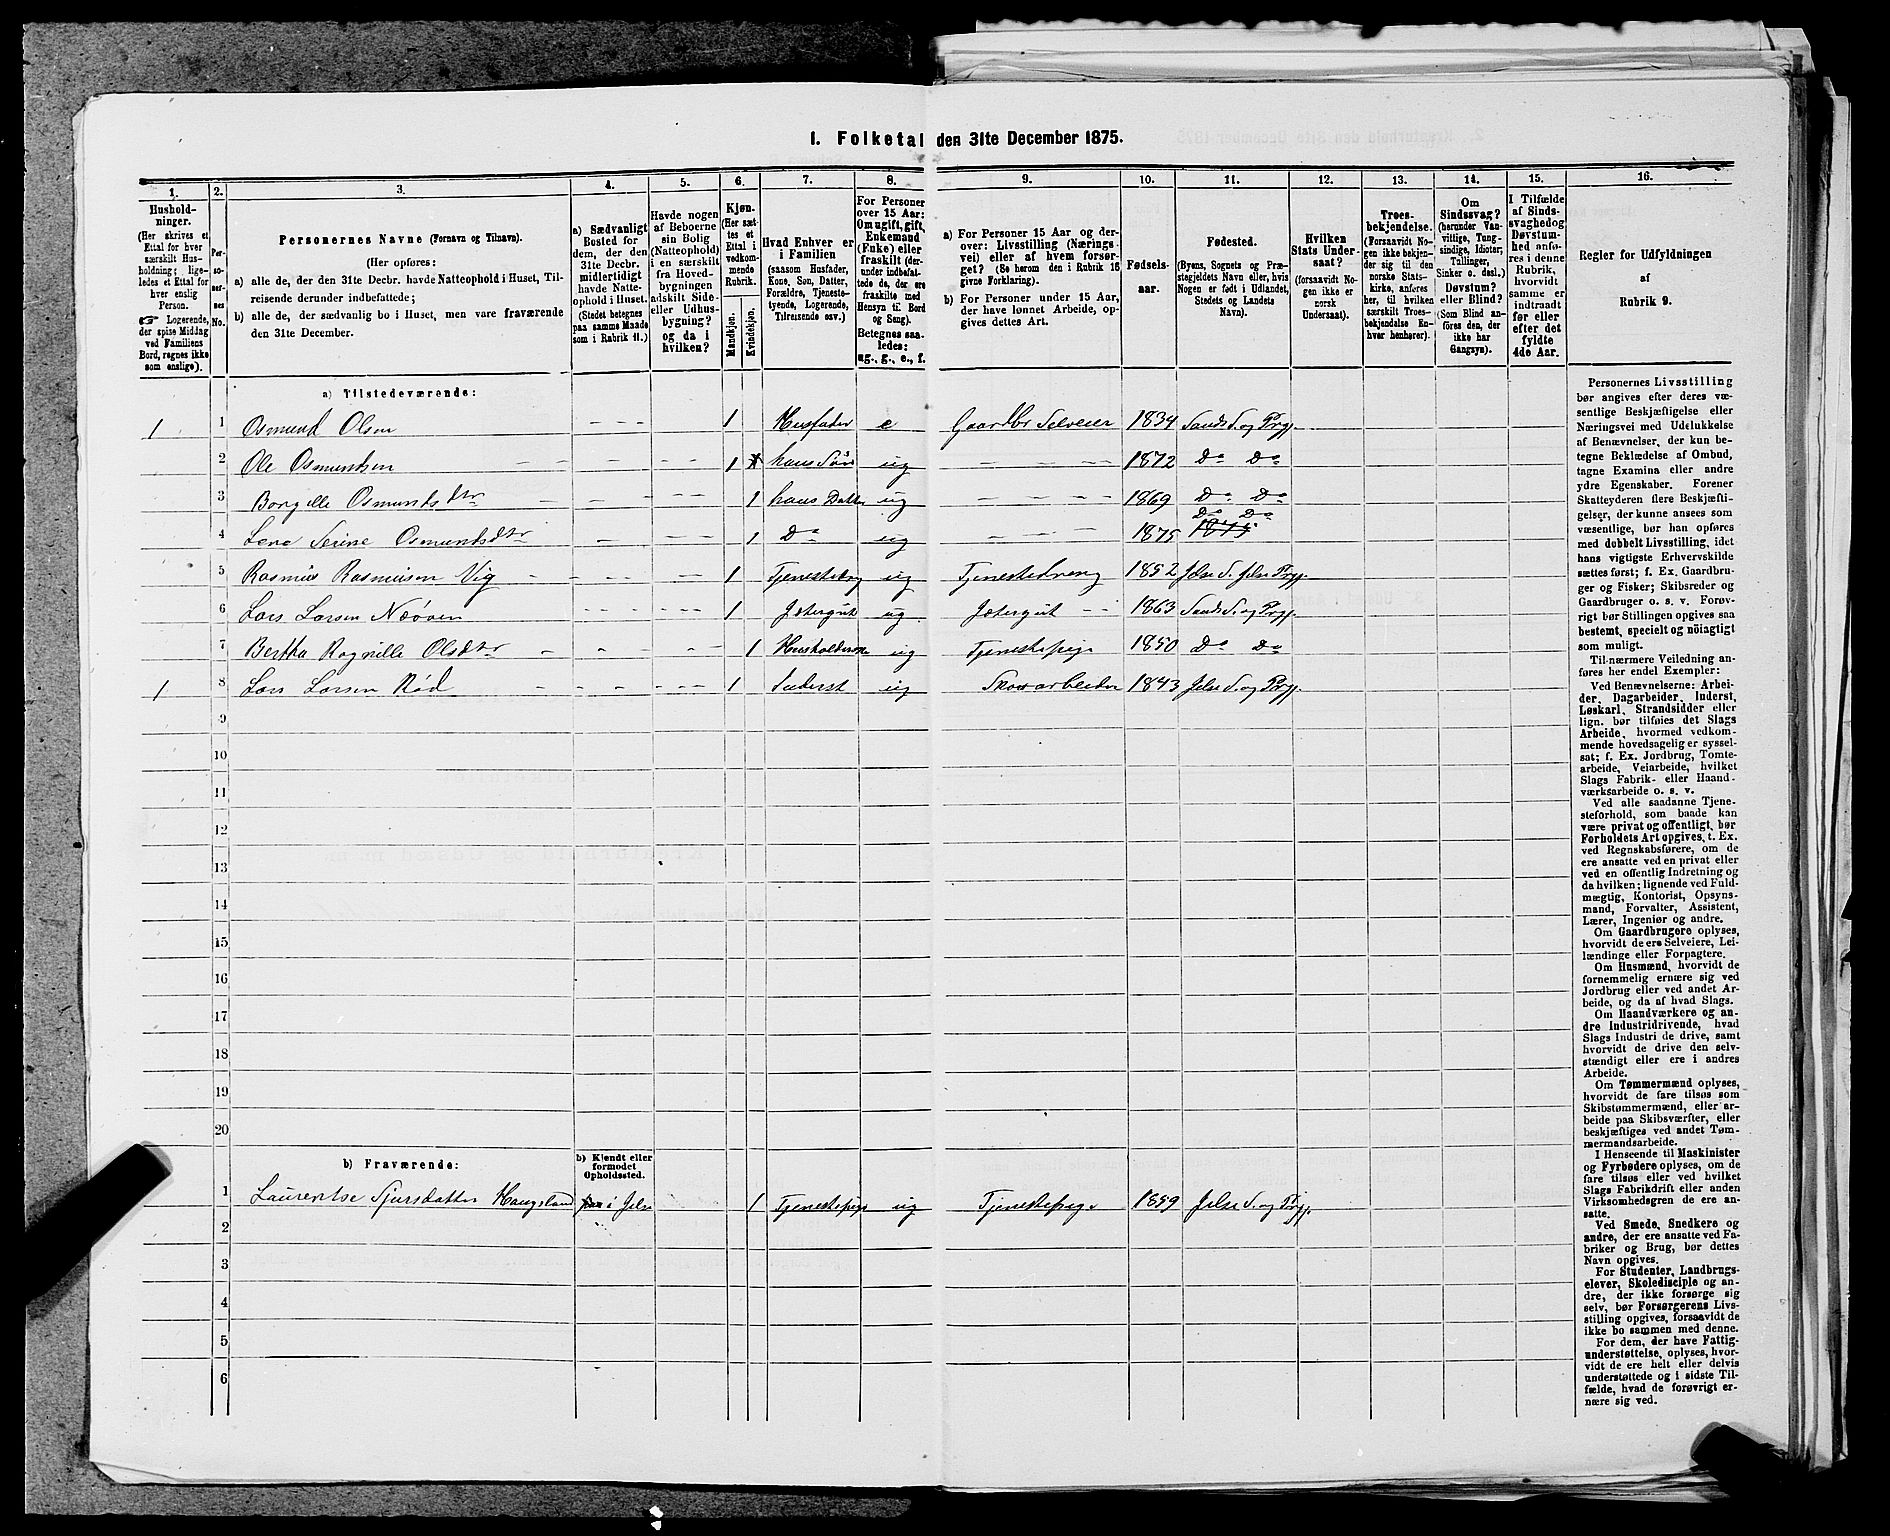 1. Folketal den 31te December 1875.
1.
2.
3.
4.
5.
6.
7.
8.
9.
10.
11.
12.
13.
14.
15.
16.
Hushold-
ninger.
(Her skrives et
Ettal for hver
særskilt Hus-
holdning; lige-
ledes et Ettal for
hver enslig
Person.
☞ Logerende,
der spise Middag
ved Familiens
Bord, regnes ikke
som enslige).
Per-
so-
ner-
nes
No.
Personernes Navne (Fornavn og Tilnavn).
(Her opføres:
a) alle de, der den 31te Decbr. havde Natteophold i Huset, Til-
reisende derunder indbefattede;
b) alle de, der sædvanlig bo i Huset, men vare fraværende
den 31te December.
a) Sædvanligt
Bosted for
dem, der den
31te Decbr.
midlertidigt
havde Natte-
ophold i Huset.
(Stedet betegnes
paa samme Maade
som i Rubrik 11.)
Havde nogen
af Beboerne
sin Bolig
(Natteophold)
i en særskilt
fra Hoved-
bygningen
adskilt Side-
eller Udhus-
bygning?
og da i
hvilken?
Kjøn.
(Her sæt-
tes et
Ettal i
vedkom-
mende
Rubrik.
Mandkjøn.
Kvindekjøn.
Hvad Enhver er
i Familien
(saasom Husfader,
Kone, Søn, Datter,
Forældre, Tjeneste-
tyende, Logerende,
Tilreisende osv.)
For Personer
over 15 Aar:
Om ugift, gift,
Enkemand
(Enke) eller
fraskilt (der-
under indbefat-
tede de, der ere
fraskilte med
Hensyn til Bord
og Seng).
Betegnes saa-
ledes:
ug., g., e., f.
a) For Personer 15 Aar og der-
over: Livsstilling (Nærings-
vei) eller af hvem forsør-
get? (Se herom den i Rubrik 16
givne Forklaring).
b) For Personer under 15 Aar,
der have lønnet Arbeide, op-
gives dettes Art.
Fødsels-
aar.
Fødested.
(Byens, Sognets og Præ-
stegjeldets Navn eller, hvis
Nogen er født i Udlandet,
Stedets og Landets
Navn).
Hvilken
Stats Under-
saat?
(forsaavidt No-
gen ikke er
norsk
Undersaat).
Troes-
bekjendelse.
(Forsaavidt No-
gen ikke bekjen-
der sig til den
norske Stats-
kirke, anføres
her, til hvilken
særskilt Troes-
bekjendelse En-
hver henhører).
Om
Sindssvag?
(herunder Van-
vittige, Tung-
sindige, Idioter,
Tullinger,
Sinker o. desl.)
Døvstum?
eller Blind?
(Som Blind an-
føres den, der
ikke har
Gangsyn).
I Tilfælde
af Sinds-
svaghed og
Døvstum-
hed anfø-
res i denne
Rubrik,
hvorvidt
samme er
indtraadt
før eller
efter det
fyldte
4de Aar.
Regler for Udfyldningen
af
Rubrik 9.
a) Tilstedeværende:
1 1 Osmund Olsen 1 Husfader e Gaardbr Selveier 1834 Sands S. og Prgj.
2 Ole Osmundsen 1 hans Søn ug 1872 Do Do
3 Borgille Osmundsdtr 1 hans Datter ug 1869 Do Do
4 Lena Serine Osmundsdtr 1 Do ug 1875 Do Do
5 Rasmus Rasmusen Vig 1 Tjenestedrg ug Tjenestedreng 1852 Jelse S. Jelse Prgj.
6 Lars Larsen 1 Jetergut ug Jetergut 1863 Sands S. og Prgj.
7 Bertha Ragnille Olsdtr 1 Husholderske ug Tjenestepige 1850 Do Do
1 8 Lars Larsen Rød 1 Inderst ug Skovarbeider 1843 Jelse S. og Prgj.
9
10
11
12
13
14
15
16
17
18
19
20
b) Fraværende:
b) Kjendt eller
formodet
Opholdssted.
1 Laurentse Sjursdatter Haugeland i Jelse 1 Tjenestepige ug Tjenestepige 1859 Jelse S. og Prgj.
2
3
4
5
6
Personernes Livsstilling
bør angives efter deres væ-
sentlige Beskjæftigelse eller
Næringsvei med Udelukkelse
af Benævnelser, der kun be-
tegne Beklædelse af Ombud,
tagne Examina eller andre
ydre Egenskaber. Forener
Skatteyderen flere Beskjæfti-
gelser, der kunne ansees som
væsentlige, bør han opføres
med dobbelt Livsstilling, idet
hans vigtigste Erhvervskilde
sættes først; f. Ex. Gaardbru-
ger og Fisker; Skibsreder og
Gaardbruger o. s. v. Forøv-
rigt bør Stillingen opgives saa
bestemt, specielt og nöiagtigt
som muligt.
Til nærmere Veiledning an-
føres her endel Exempler:
Ved Benævnelserne: Arbei-
der, Dagarbeider, Inderst,
Løskarl, Strandsidder eller
lign. bør tilføies det Slags
Arbeide, hvormed vedkom-
mende hovedsagelig er syssel-
sat; f. Ex. Jordbrug, Tomte-
arbeide, Veiarbeide, hvilket
Slags Fabrik- eller Haand-
værksarbeide o. s. v.
Ved alle saadanne Tjene-
steforhold, som baade kan
være privat og offentligt, bør
Forholdets Art opgives, t. Ex.
ved Regnskabsførere, om de
ere ansatte ved en privat eller
ved en offentlig Indretning og
da hvilken; lignende ved Fuld-
mægtig, Kontorist, Opsyns-
mand, Forvalter, Assistent,
Lærer, Ingeniør og andre.
Om Gaardbrugere oplyses,
hvorvidt de ere Selveiere, Lei-
lændinge eller Forpagtere.
Om Husmænd, hvorvidt de
fornemmelig ernære sig ved
Jordbrug eller ved andet Ar-
beide, og da af hvad Slags.
Om Haandværkere og an-
dre Industridrivende, hvad
Slags Industri de drive, samt
hvorvidt de drive den selv-
stændigt eller ere i andres
Arbeide.
Om Tømmermænd oplyses,
hvorvidt de fare tilsøs som
Skibstømmermænd, eller ar-
beide paa Skibsværfter, eller
beskjæftiges ved andet Tøm-
mermandsarbeide.
I Henseende til Maskinister
og Fyrbødere oplyses, om de
fare tilsøs eller ved hvilket
Slags Fabrikdrift eller anden
Virksomhedsgren de ere an-
satte.
Ved Smede, Snedkere og
andre, der ere ansatte ved Fa-
briker og Brug, bør dettes
Navn opgives.
For Studenter, Landbrugs-
elever, Skoledisciple og an-
dre, der ikke forsørge sig
selv, bør Forsørgerens Livs-
stilling opgives, forsaavidt de
ikke bo sammen med denne.
For dem, der have Fattig-
understøttelse, oplyses, hvor-
vidt de ere helt eller delvis
understøttede og i sidste Til-
fælde, hvad de forøvrigt er-
nære sig ved.